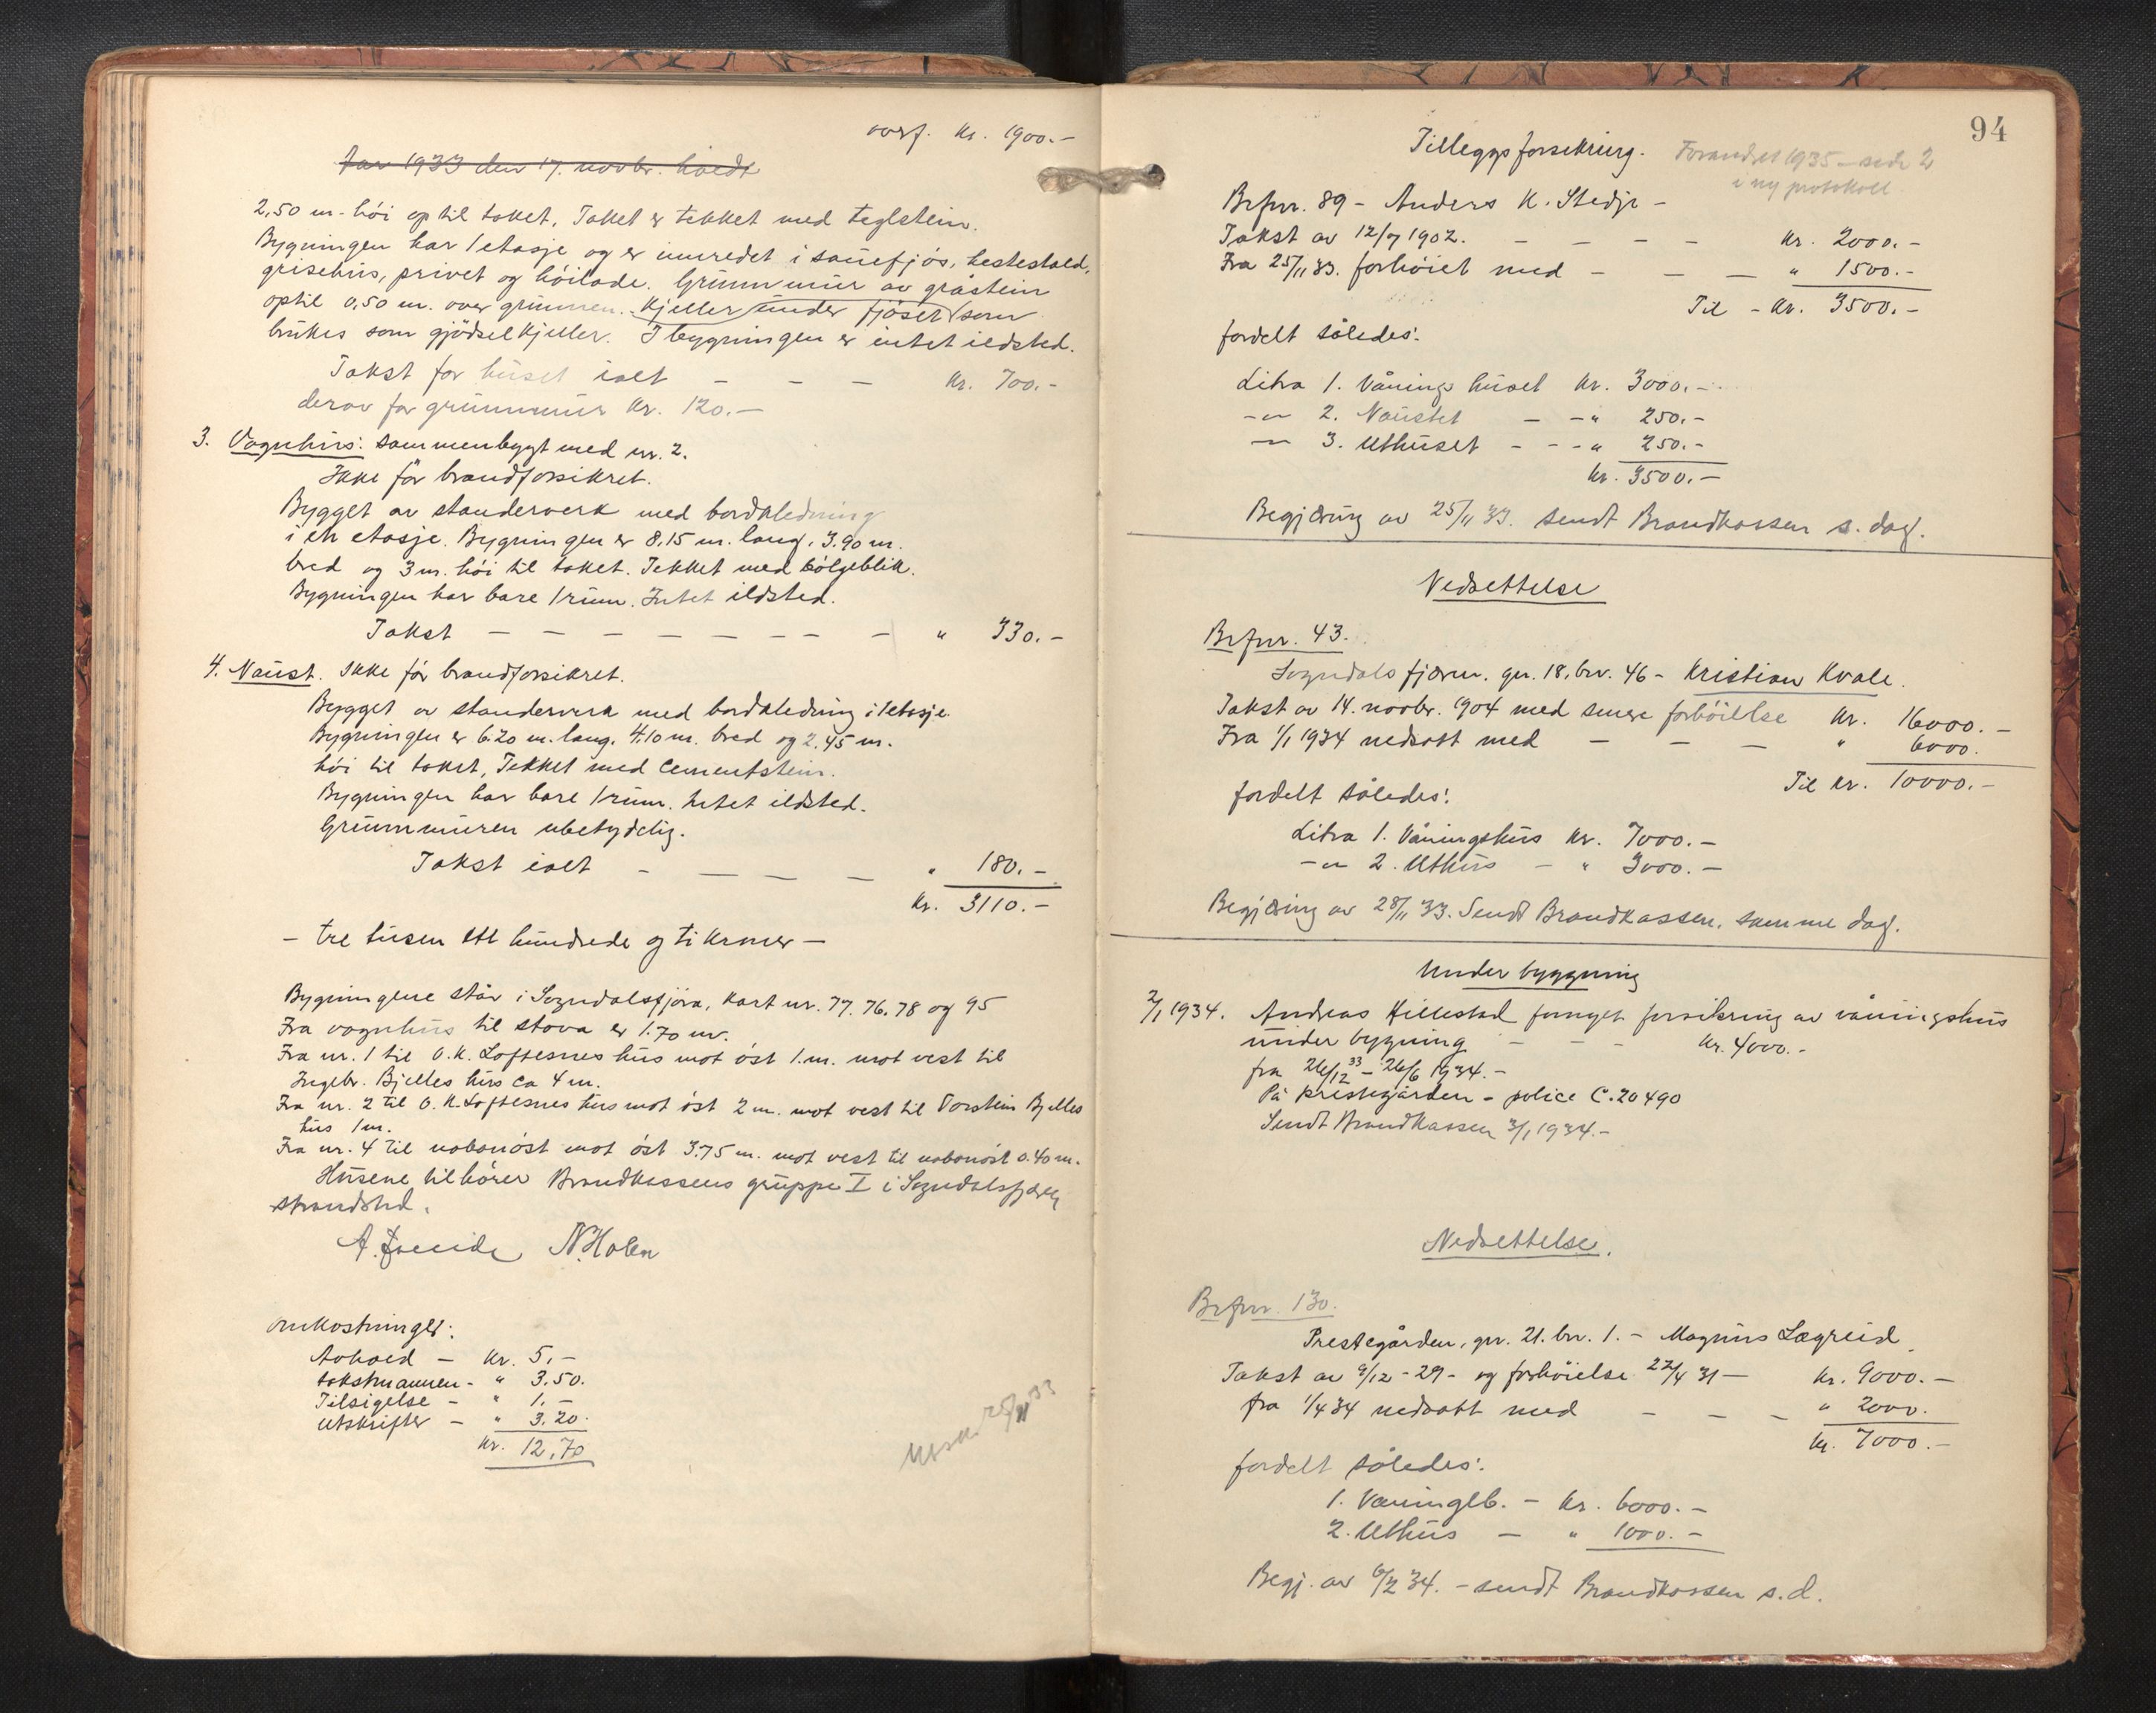 overf. Kr. 1900.-
Aar 1933 den 17. novbr. holdt
2,50 m. höi op til taket. Taket er tekket med teglstein.
Bygningen har 1 etasje og er innredet i sauefjös, hestestald,
grisehus, privet og höilade. Grunnmur av gråstein
optil 0,50 m. over grunnen. Kjeller under fjöset som
brukes som gjödselkjeller. I bygningen er intet ildsted.
Takst for huset ialt - - - Kr. 700.-
derav for grunnmur Kr. 120.-
3. Vognhus: sammenbygt med nr. 2.
Ikke för brandforsikret.
Bygget av standerverk med bordkledning
i en etasje. Bygningen er 8,15 m. lang, 3.90 m.
bred og 3 m. höi til taket. Tekket med bölgeblik.
Bygningen har bare 1 rum. Intet ildsted.
Takst - - - - - - - - - " 330.-
4. Naust. Ikke för brandforsikret.
Bygget av standerverk med bordkledning i 1 etasje.
Bygningen er 6.20 m. lang, 4.10 m. bred og 2,45 m.
höi til taket, Tekket med Cementstein.
Bygningen har bare 1 rum. Intet ildsted.
Grunnmuren ubetydelig.
Takst ialt - - - - " 180.-
Kr. 3110.-
- tre tusen ett hundrede og ti kroner -
Bygningene står i Sogndalsfjöra, Kart nr. 77. 76. 78 og 95
Fra vognhus til stova er 1.70 m.
Fra nr. 1 til O.K. Loftesnes hus mot öst 1.m. mot vest til
Ingebr. Bjelles hus ca 4 m.
Fra nr. 2 til O.K. Loftesnes hus mot öst 2 m. mot vest til Torstein Bjelles
hus 1 m.
Fra nr. 4 til nabonöst mot öst 3.75 m. mot vest til nabonöst 0.40 m.
Husene tilhörer Brandkassens gruppe I i Sogndalsfjæren
strandsted.
A. N. Holen
Omkostninger:
Avhold - Kr. 5.-
takstmannen - " 3.50.
Tilsigelse - " 1.-
Utskrifter - " 3.20.
Kr. 12,70
25/11 33
94
Tilleggsforsikring.
Forandret 1935 - side 2
i ny protokoll
Brfnr. 89 - Anders K. Stedje -
Takst av 12/7 1902. - - - - Kr. 2000.-
Fra 25/11 33. forhöiet med - - - " 1500.-
Til - Kr. 3500.-
fordelt således:
Litra 1. Vånings huset Kr. 3000.-
-"- 2. Naustet - -" 250.-
-"- 3. Uthuset - - -" 250.-
Kr. 3500.-
Begjæring av 25/11 33. sendt Brandkassen s. dag.
Nedsettelse
Brfnr. 43.
Sogndalsfjæren. gn. 18, bnr. 46 - Kristian Kvale.
Takst av 14. novbr. 1904 med senere forhöielse Kr. 16000.-
Fra 1/1 1934 nedsatt med - - - " 6000.
Til kr. 10000.-
fordelt således:
Litra 1. Våningshus Kr. 7000.-
-"- 2. Uthus - " 3000.-
Begjæring av 28/11 33. Sendt Brandkassen. samme dag.
Under byggning
2/1 1934. Andreas Hillestad fornyet forsikring av våningshus
under bygning - - - Kr. 4000.-
fra 26/12 33 - 26/6 1934.-
På Prestegården - police C.20490
Sendt Brandkassen 3/1 1934.-
Nedsettelse.
Brfnr. 130.
Prestegården, gn. 21. bnr. 1. - Magnus Lægreid
Takst av 9/12 - 29 - og forhöielse 22/4 31 - Kr. 9000.-
fra 1/4 34 nedsatt med - - - " 2000.
Kr. 7000.-
fordelt således:
1. Vaaningsb. - Kr. 6000.-
2. Uthus - " 1000.-
Begj. av 6/2 34. - sendt Brandkassen s.d.